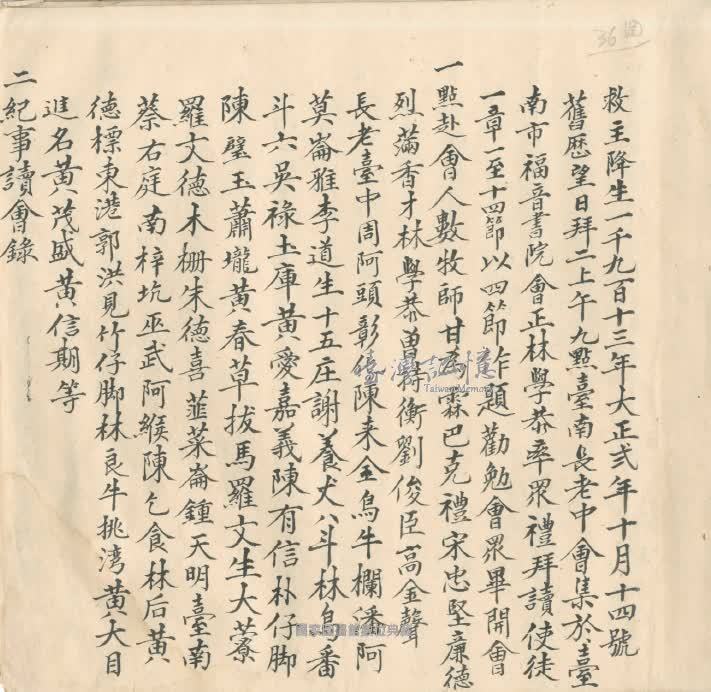 36
救主降生一千九百十三年大正弍年十月十四號
舊歷望日拜二上午九點臺南長老中會集於臺
南市福音書院會正林學恭率眾禮拜讀使徒
一章一至十四節以四節作題勸勉會眾畢開會
一點赴會人數牧師甘為霖巴克禮宋忠堅廉德
烈滿香才林學恭曾衡劉俊臣高金聲
長老臺中周阿頭彰化陳来全烏牛欄潘阿
莫崙雅李道生十五庄謝養犬八斗林鳥番
斗六吳祿土庫黃愛嘉義陳有信朴仔脚
陳璧玉蕭壠黃春草拔馬羅文生大藔
羅文德木柵朱德喜韮菜崙鍾天明臺南
蔡右庭南梓坑巫武阿緱陳乞食林后黃
德標東港郭洪見竹仔脚林良牛挑湾黃大目
進名黃茂盛黃信期等
二紀事讀會錄
臺灣記憶
Taiwan Memory
國家圖書館數位典藏